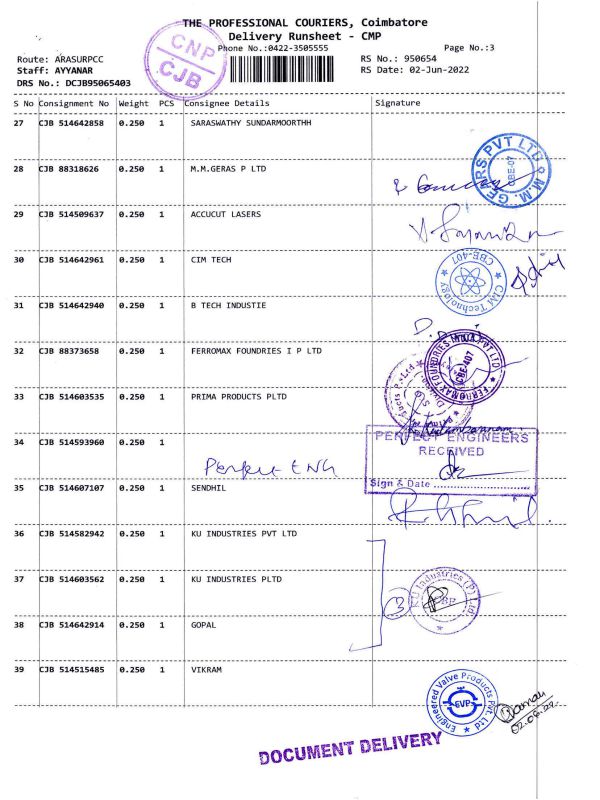 THE PROFESSIONAL COURIERS, Coimbatore
Delivery Runsheet - CMP
Phone No.:0422-3505555
Page No.:3
Route: ARASURPCC
RS No.: 950654
Staff: AYYANAR
RS Date: 02-Jun-2022
DRS No.: DCJB95065403
CNP
CJB
S No Consignment No Weight PCS Consignee Details Signature
27 CJB 514642858 0.250 1 SARASWATHY SUNDARMOORTHH
28 CJB 88318626 0.250 1 M.M.GERAS P LTD
M.M. GEARS PVT LTD
CBE-07
29 CJB 514509637 0.250 1 ACCUCUT LASERS
30 CJB 514642961 0.250 1 CIM TECH
CIM Technology
CBE-407
31 CJB 514642940 0.250 1 B TECH INDUSTIE
32 CJB 88373658 0.250 1 FERROMAX FOUNDRIES I P LTD
FERROMAX FOUNDRIES INDIA PVT LTD
CBE-407
33 CJB 514603535 0.250 1 PRIMA PRODUCTS PLTD
34 CJB 514593960 0.250 1
Perfect ENG
PERFECT ENGINEERS
RECEIVED
Sign & Date
35 CJB 514607107 0.250 1 SENDHIL
36 CJB 514582942 0.250 1 KU INDUSTRIES PVT LTD
37 CJB 514603562 0.250 1 KU INDUSTRIES PLTD
3
KU Industries (P) Ltd
CBE
38 CJB 514642914 0.250 1 GOPAL
39 CJB 514515485 0.250 1 VIKRAM
Engineered Valve Products Pvt. Ltd
EVP
02.06.22
DOCUMENT DELIVERY